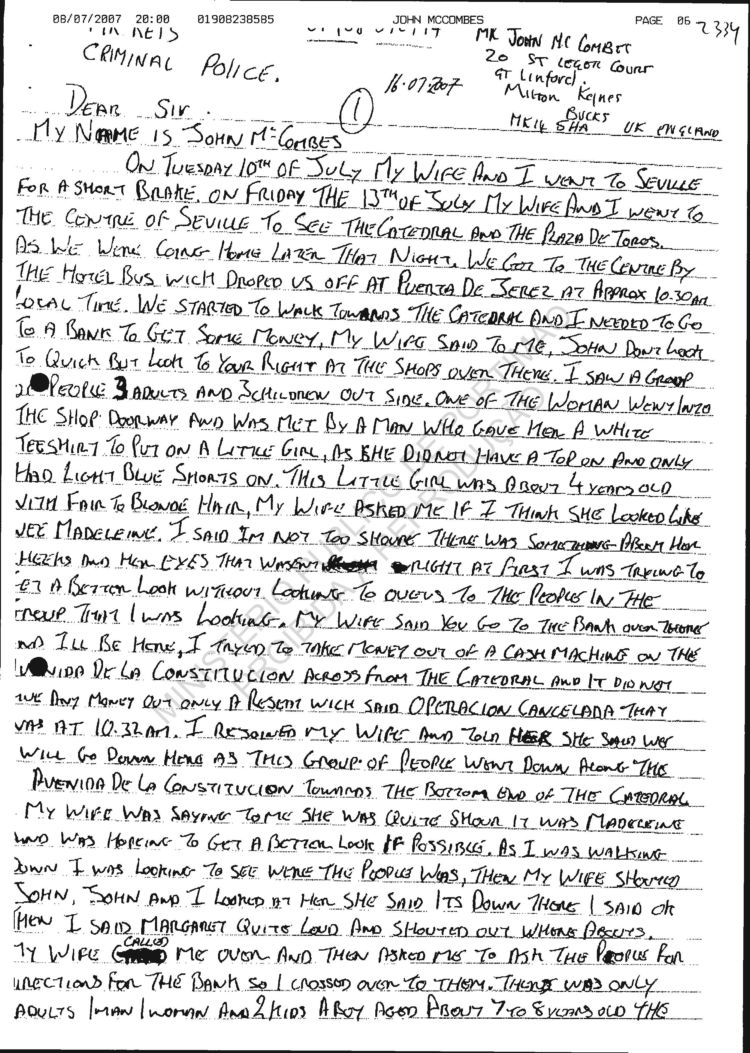 08/07/2007 20:00 01908238585 JOHN MCCOMBES PAGE 06 2334
MR REIS
CRIMINAL POLICE.
16.07.2007
MR JOHN MC COMBES
20 ST LEGER COURT
GT LINFORD.
MILTON KEINES
BUCKS
MK14 5HA UK ENGLAND
DEAR SIR. 1
MY NAME IS JOHN McCOMBES
ON TUESDAY 10TH OF JULY MY WIFE AND I WENT TO SEVILLE
FOR A SHORT BRAKE. ON FRIDAY THE 13TH OF JULY MY WIFE AND I WENT TO
THE CENTRE OF SEVILLE TO SEE THE CATEDRAL AND THE PLAZA DE TOROS.
AS WE WERE GOING HOME LATER THAT NIGHT. WE GOT TO THE CENTRE BY
THE HOTEL BUS WICH DROPED US OFF AT PUERTA DE JEREZ AT APPROX 10.30 AM
LOCAL TIME. WE STARTED TO WALK TOWARDS THE CATEDRAL AND I NEEDED TO GO
TO A BANK TO GET SOME MONEY, MY WIFE SAID TO ME, JOHN DONT LOOK
TO QUICK BUT LOOK TO YOUR RIGHT AT THE SHOPS OVER THERE. I SAW A GROUP
PEOPLE 3 ADULTS AND 3 CHILDREN OUT SIDE. ONE OF THE WOMAN WENT INTO
THE SHOP DOORWAY AND WAS MET BY A MAN WHO GAVE HER A WHITE
TEESHIRT TO PUT ON A LITTLE GIRL, AS SHE DID NOT HAVE A TOP ON AND ONLY
HAD LIGHT BLUE SHORTS ON. THIS LITTLE GIRL WAS ABOUT 4 YEARS OLD
WITH FAIR TO BLONDE HAIR, MY WIFE ASKED ME IF I THINK SHE LOOKED LIKE
WEE MADELEINE. I SAID IM NOT TOO SHOURE THERE WAS SOMETHING ABOUT HER
CHEEKS AND HER EYES THAT WASENT RIGHT AT FIRST I WAS TRYING TO
GET A BETTER LOOK WITHOUT LOOKING TO OVEUS TO THE PEOPLE IN THE
GROUP THAT I WAS LOOKING. MY WIFE SAID YOU GO TO THE BANK OVER THERE
AND ILL BE HERE, I TRYED TO TAKE MONEY OUT OF A CASH MACHINE ON THE
AVENIDA DE LA CONSTITUCION ACROSS FROM THE CATEDRAL AND IT DID NOT
GIVE ANY MONEY OUT ONLY A RESEAT WICH SAID OPERACION CANCELADA THAT
WAS AT 10.32 AM. I RESOINED MY WIFE AND TOLD HER SHE SAID WE
WILL GO DOWN HERE AS THIS GROUP OF PEOPLE WENT DOWN ALONG THE
AVENIDA DE LA CONSTITUCION TOWARDS THE BOTTOM END OF THE CATEDRAL
MY WIFE WAS SAYING TO ME SHE WAS QUITE SHOUR IT WAS MADELEINE
AND WAS HOPEING TO GET A BETTER LOOK IF POSSIBLE. AS I WAS WALKING
DOWN I WAS LOOKING TO SEE WERE THE PEOPLE WAS, THEN MY WIFE SHOUTED
JOHN, JOHN AND I LOOKED AT HER SHE SAID ITS DOWN THERE I SAID OK
THEN I SAID MARGARET QUITE LOUD AND SHOUTED OUT WHERE ABOUTS.
MY WIFE CALLED ME OVER AND THEN ASKED ME TO ASK THE PEOPLE FOR
DIRECTIONS FOR THE BANK SO I CROSSED OVER TO THEM. THERE WAS ONLY
ADULTS 1 MAN 1 WOMAN AND 2 KIDS A BOY AGED ABOUT 7 TO 8 YEARS OLD THE
MINISTÉRIO PÚBLICO DE PORTIMÃO
PROIBIDA A REPRODUÇÃO